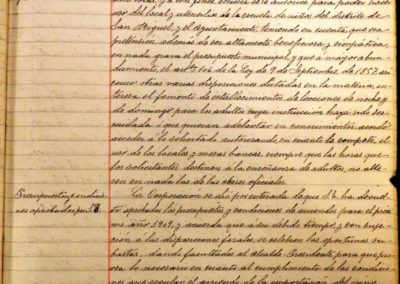 so del local y utensilios de la escuela de niños del distrito de
San Miguel; y el Ayuntamiento teniendo en cuenta, que esa
pretensión además de ser altamente beneficiosa y simpática,
en nada grava el presupuesto municipal, y que a mayor abun-
damiento, el artº 106 de la Ley de 9 de Septiembre de 1857, así
como otras varias disposiciones dictadas en la materia, in-
teresa el fomento de establecimientos de lecciones de noche y
de domingo para los adultos cuya instrucción haya sido des-
cuidada o que quieran adelantar en conocimientos, acordó
acceder a lo solicitado autorizando, en cuanto le compete, el
uso de los locales y mesas bancos, siempre que las horas que
los solicitantes destinen a la enseñanza de adultos, no alte-
ren en nada las de clases oficiales.
Presupuesto y condicio-
nes aprobadas por
La Corporación se dió por enterada de que
aprobado los presupuestos y condiciones de arriendo para el próxi-
mo año 1909, y acuerda que a su debido tiempo y con suje-
ción a las disposiciones forales, se celebren las oportunas su-
bastas, dando facultades al Alcalde Presidente para que provea
lo necesario en cuanto al cumplimiento de las condicio-
nes que regulan el arriendo de la exportación del